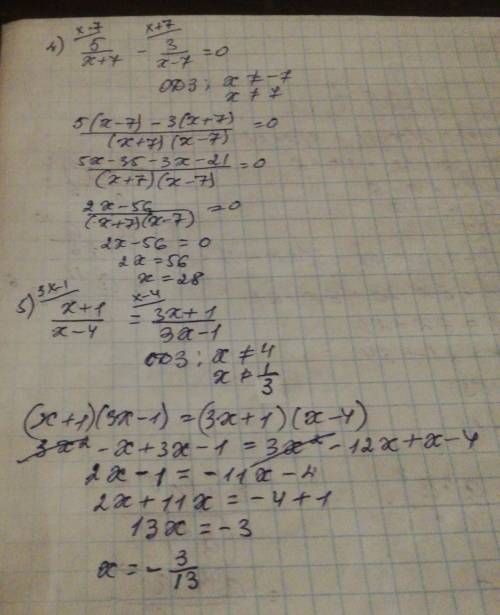 x-7 x+7
4) 5/(x+7) - 3/(x-7) = 0
ОДЗ: x ≠ -7
x ≠ 7
(5(x-7) - 3(x+7))/((x+7)(x-7)) = 0
(5x-35-3x-21)/((x+7)(x-7)) = 0
(2x-56)/((x+7)(x-7)) = 0
2x-56 = 0
2x = 56
x = 28
3x-1 x-4
5) (x+1)/(x-4) = (3x+1)/(3x-1)
ОДЗ: x ≠ 4
x ≠ 1/3
(x+1)(3x-1) = (3x+1)(x-4)
3x² - x + 3x - 1 = 3x² - 12x + x - 4
2x - 1 = -11x - 4
2x + 11x = -4 + 1
13x = -3
x = - 3/13